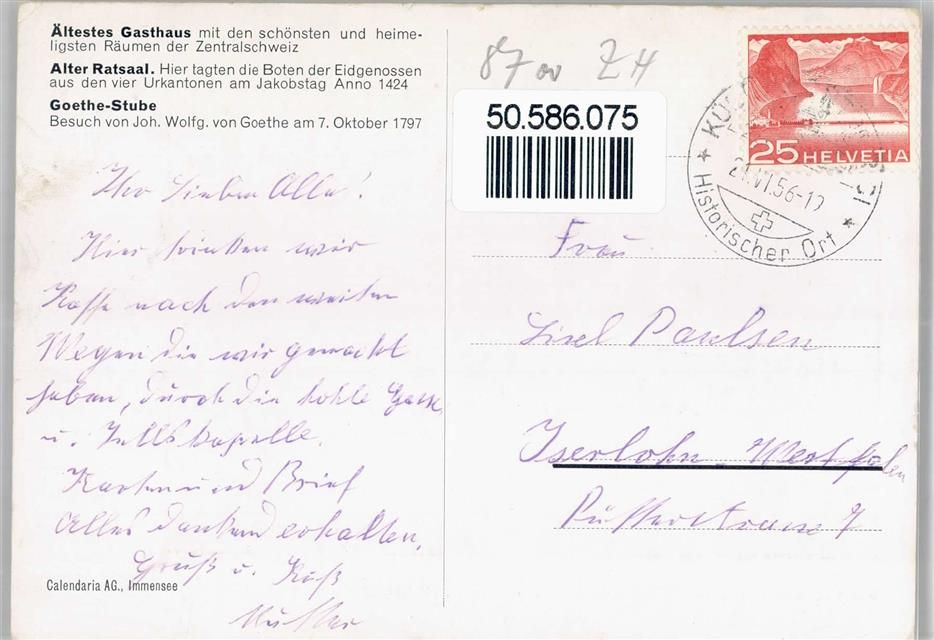 Ältestes Gasthaus mit den schönsten und heime-
ligsten Räumen der Zentralschweiz
Alter Ratsaal. Hier tagten die Boten der Eidgenossen
aus den vier Urkantonen am Jakobstag Anno 1424
Goethe-Stube
Besuch von Joh. Wolfg. von Goethe am 7. Oktober 1797
Ihr Lieben Alle!
Hier trinken wir
Kaffe nach den weiten
Wegen die wir gemacht
haben, durch die hohle Gasse
u. Tellskapelle.
Karten und Brief
alles dankend erhalten.
Gruß u. Kuß
Mutter
Calendaria AG., Immensee
87 ZH
50.586.075
25 HELVETIA
KÜ
21.VI.56-12
Historischer Ort
Frau
Lisel Paulsen
Iserlohn - Westfalen
7